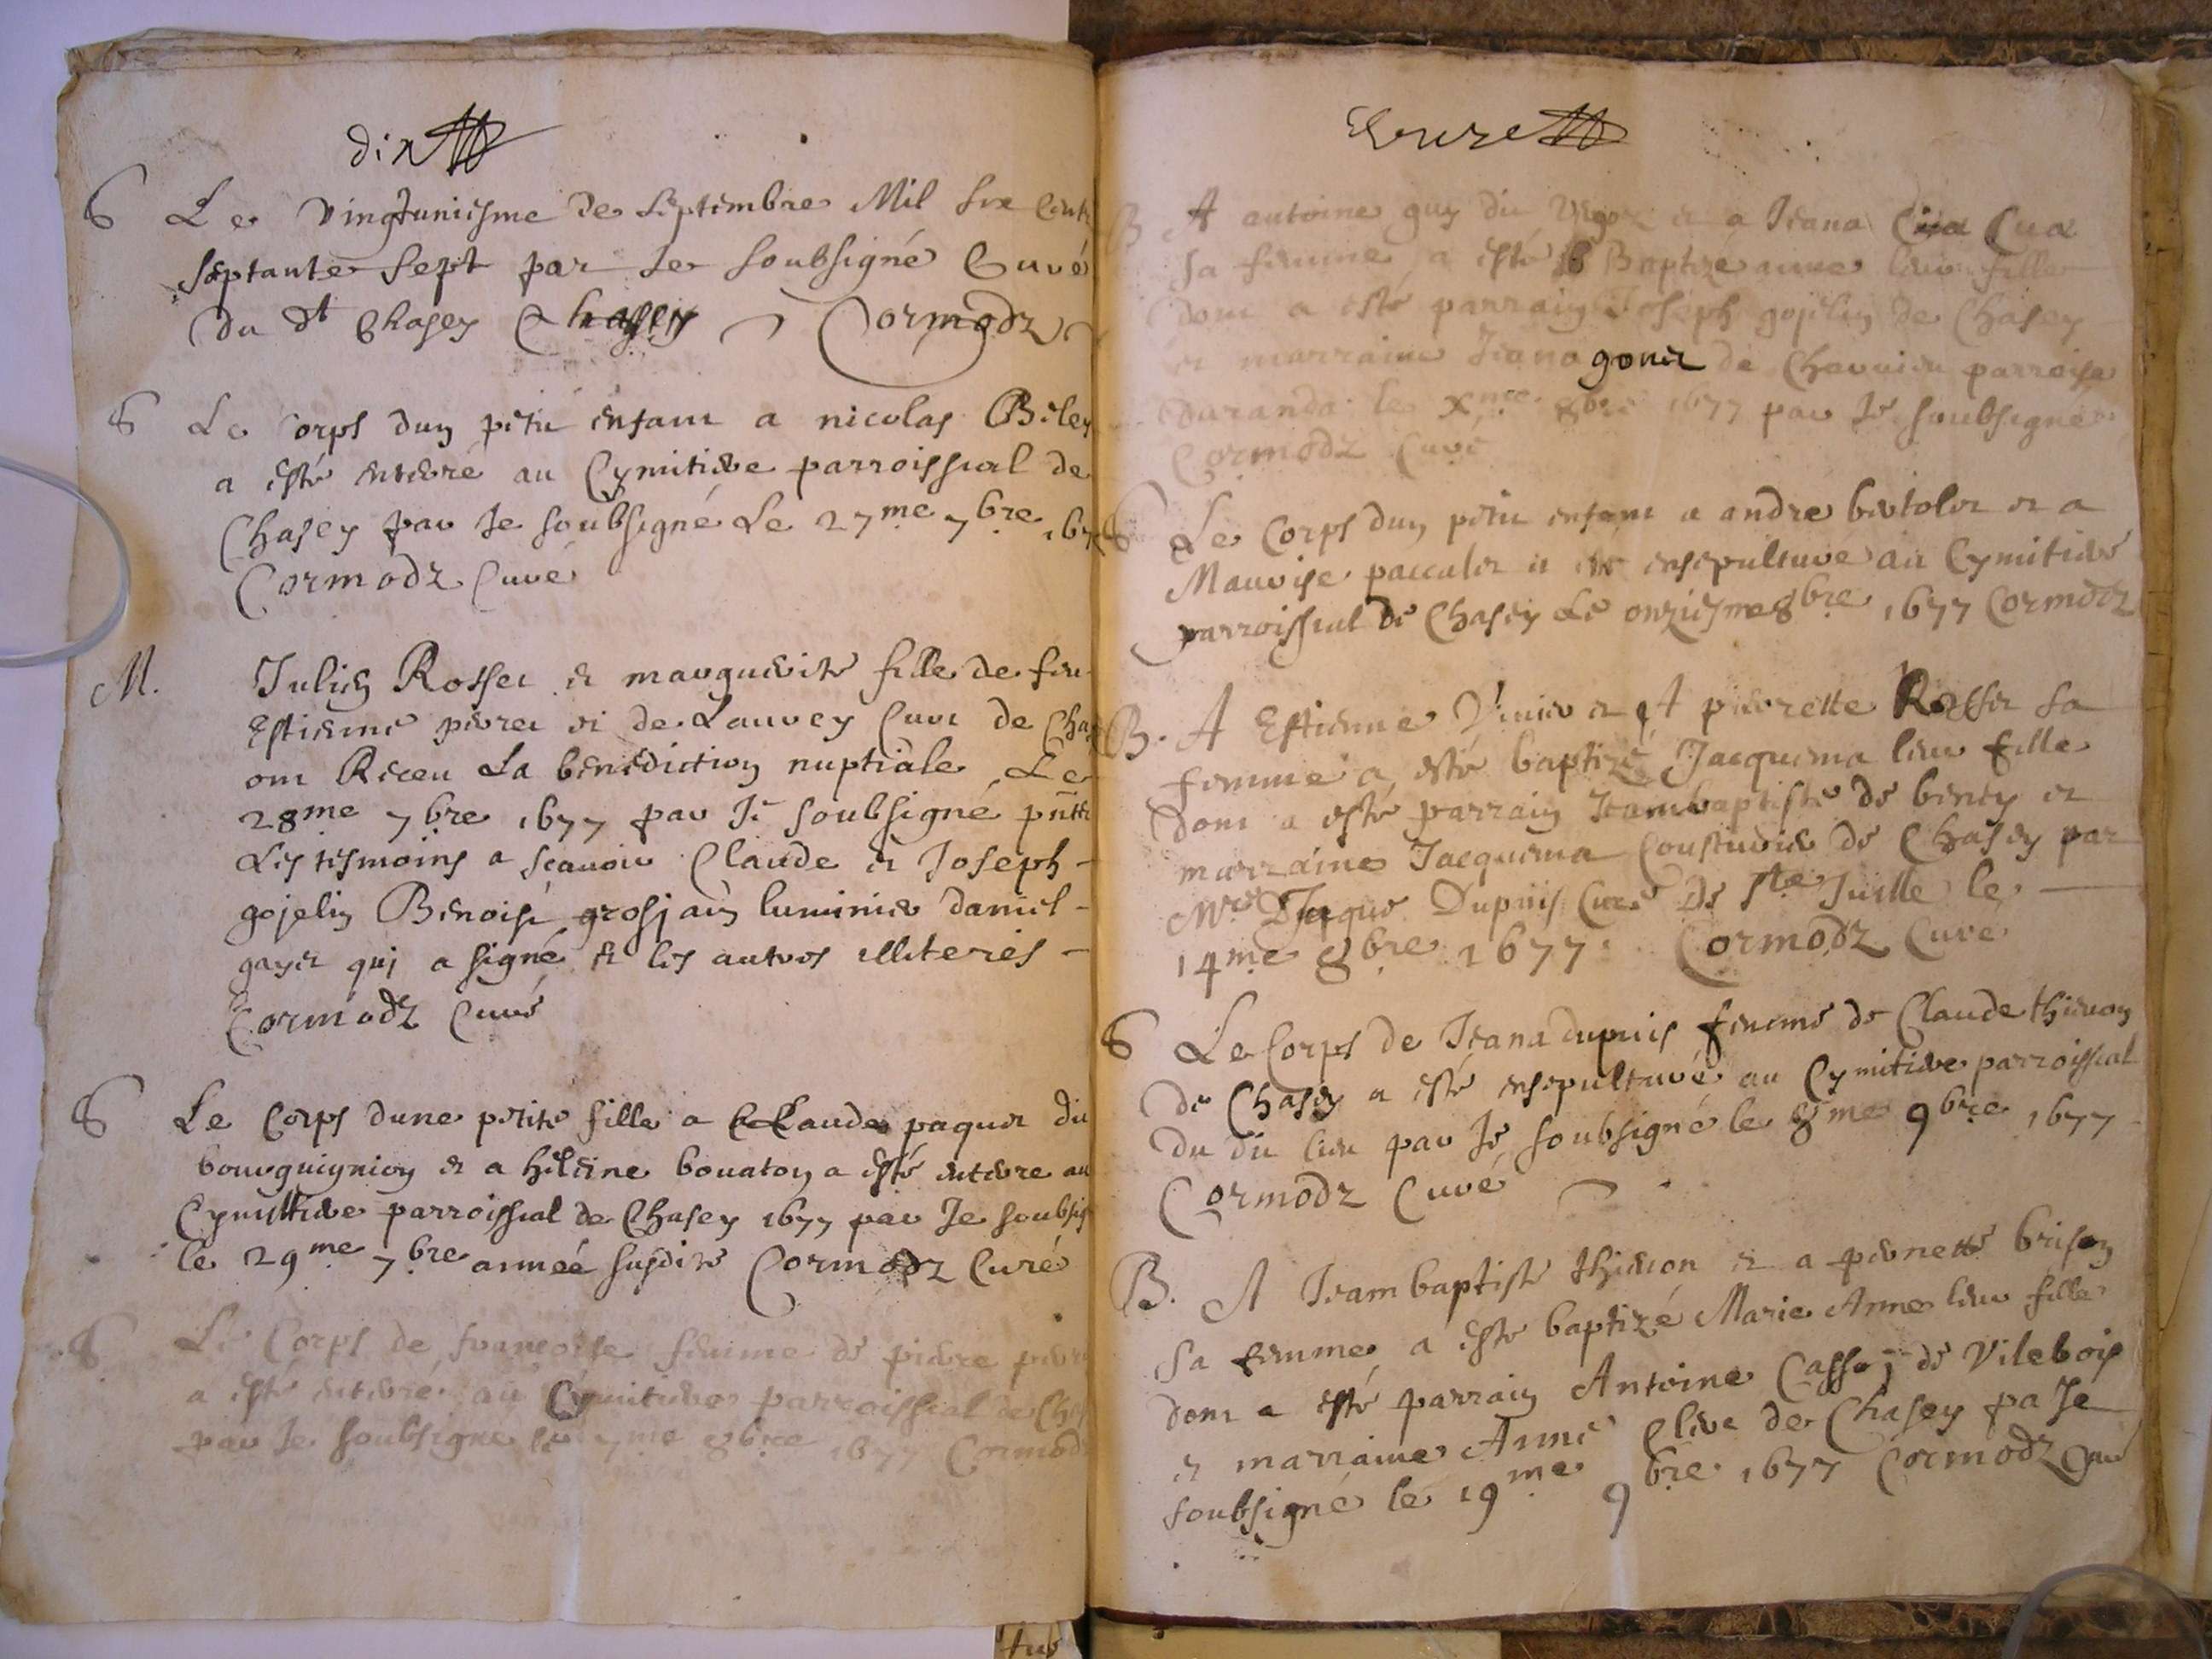 dix
S Le Vingtuniesme de Septembre Mil six cents
septante sept par Je soubsigné Curé
du dt Chasey Chasey Cormodz
S Le Corps dun petit enfant a nicolas Beley
a esté enterré au Cymitiere parroissial de
Chasey par Je soubsigné Le 27me 7bre 167
Cormodz Curé
M. Julien Rosset et marguerite fille de feu
Estienne perret et de Lauvey Curt de Chas
ont Receu La benediction nuptiale Le
28me 7bre 1677 par Je soubsigné pnts
Les tesmoins a scavoir Claude et Joseph
gojelin Benoist grosjain luminier daniel
gayet qui a signé et les autres illiterés
Cormodz Curé
S Le Corps dune petite fille a Claude paquet du
bourguignion et a helene bouaton a esté enterre au
Cymittiere parroissial de Chasey 1677 par Je soubsig
le 29me 7bre année susdite Cormodz Curé
S Le Corps de francoise femme de pierre
a esté enterré au Cymitiere parroissial de Chas
par Je soubsigne le 7me 8bre 1677 Cormodz
Unze
B A antoine guy du et a Jeana Cua
sa femme a esté Baptizé une leur fille
dont a esté parrain Joseph gojelin de Chasey
et marraine Jeana gonet de parroisse
le Xme 8bre 1677 par Je soubsigné
Cormodz Curé
S Le Corps dun petit enfant a andre bertolet et a
Maurise paccalet a esté ensepulturé au Cymitiere
parroissial de Chasey Le onziesme 8bre 1677 Cormodz
B. A Estienne et A pierrette Rosset sa
femme a esté baptizé Jacquema leur fille
dont a esté parrain Jeambaptiste de beney et
marraine Jacquema Cousturier de Chasey par
Mre Jaque Dupuis Curé de Ste Juille le
14me 8bre 1677 Cormodz Curé
S Le Corps de Jeana dupuis femme de Claude thievon
de Chasey a esté ensepulturé au Cymitiere parroissial
du dit lieu par Je soubsigné le 8me 9bre 1677
Cormodz Curé
B. A Jeambaptiste thievon et a pernette brison
sa femme a esté baptizé Marie Anne leur fille
dont a esté parrain Antoine Cassaj de Vilebois
et marraine Anne de Chasey pa Je
soubsigné le 19me 9bre 1677 Cormodz Curé